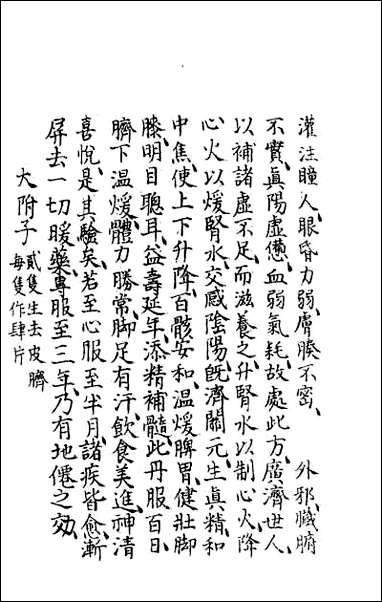 灌注瞳人、眼昏力弱、膚腠不密、 外邪臟腑
不實、真陽虛憊、血弱氣耗、故處此方、廣濟世人、
以補諸虛不足、而滋養之、升腎水以制心火、降
心火以煖腎水、交感陰陽、旣濟關元、生真精、和
中焦、使上下升降、百骸安和、温煖脾胃、健壯脚
膝、明目聰耳、益壽延年、添精補髓、此丹服百日、
臍下温煖、體力勝常、脚足有汗、飲食美進、神清
喜悅、是其驗矣、若至心服至半月、諸疾皆愈、漸
屏去一切暖藥、專服至三年、乃有地僊之効、
大附子 貳隻生去皮臍
每隻作肆片